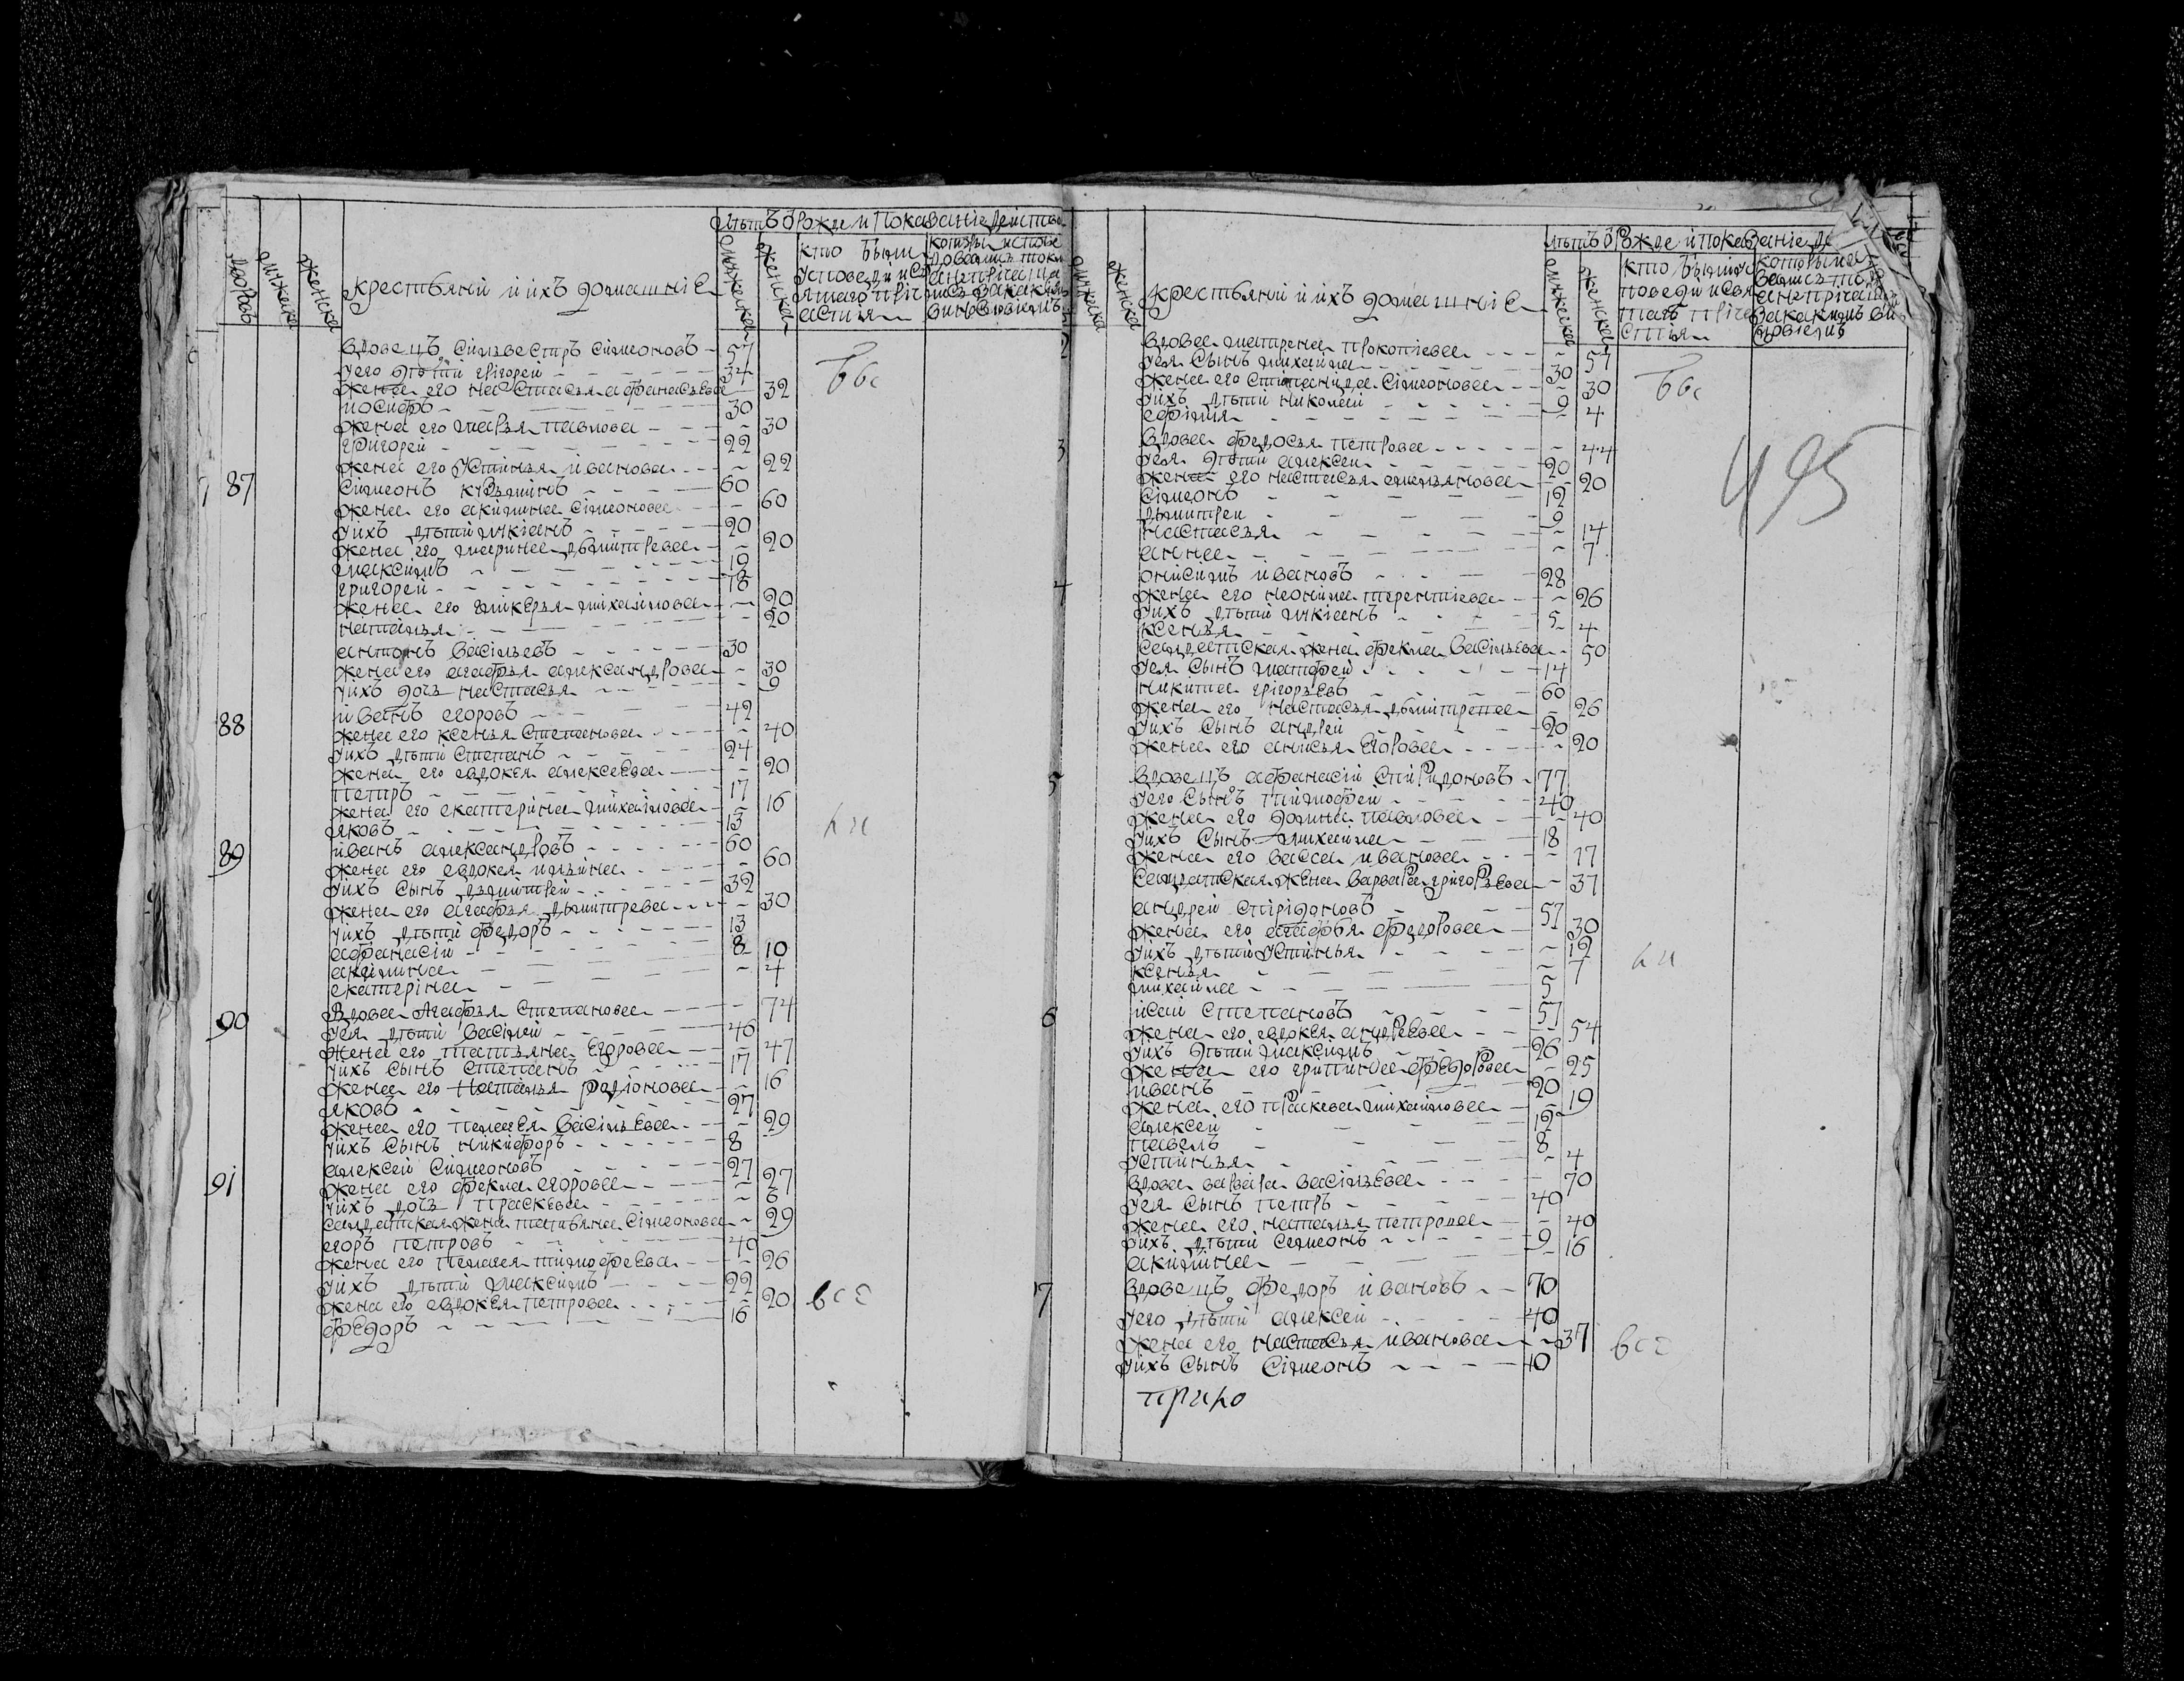 крестьяни и ихъ домашніе
Вдовецъ Силвестръ Симеоновъ 57
Его дѣти Григорей 34
жена его настасья афанасьева 32
иосифъ 30
жена его марья павлова 30
григорей 22
жена его устинья иванова 22
87 Симеонъ кузминъ 60
жена его акилина Симеонова 60
ихъ дѣти лукіанъ 20
жена его марина дмитрева 20
максимъ 19
григорей 18
жена его гликерья михайлова 20
наталья 20
антонъ васильевъ 30
жена его агафья александрова 30
ихъ дочь настасья 9
88 иванъ егоровъ 42
жена его ксенья Степанова 40
ихъ дѣти Степанъ 24
жена его евдокея алексеева 20
петръ 17
жена его екатерина михайлова 16
яковъ 13
89 иванъ александровъ 60
жена его евдокея ильина 60
ихъ сынъ дмитрей 32
жена его агафья дмитрева 30
ихъ дѣти федоръ 13
афанасій 8
акилина 10
екатерина 4
90 Вдова Агафья Степанова 74
Ея дѣти василей 46
жена его татьяна Егорова 47
ихъ сынъ степанъ 17
жена его наталья родіонова 16
яковъ 27
жена его пелагея васильева 29
ихъ сынъ никифоръ 8
91 алексей Симеоновъ 27
жена его фекла егорова 27
ихъ дочь праскева 6
салдатская жена татьяна Симеонова 29
егоръ петровъ 40
жена его пелагея тимофеева 26
ихъ дѣти максимъ 22
жена его евдокея петрова 20
федоръ 16
крестьяни и ихъ домашніе
2 Вдова матрена прокопіева 57
Ея сынъ михайла 30
жена его степанида Симеонова 30
ихъ дѣти николай 9
ефимья 4
495
3 Вдова федосья петрова 44
Ея дѣти алексеи 20
жена его настасья емельянова 20
Симеонъ 12
дмитреи 9
настасья 14
анна 7
4 онисимъ ивановъ 28
жена его неонила терентіева 26
ихъ дѣти лукіанъ 5
ксенья 4
Салдатская жена фекла васильева 50
Ея сынъ матфей 14
никита григорьевъ 60
жена его настасья дмитрева 26
ихъ сынъ андрей 20
жена его анисья Егорова 20
5 Вдовецъ афанасій Спиридоновъ 77
Его сынъ тимофей 40
жена его домна павлова 40
ихъ сынъ михайла 18
жена его васса иванова 17
Салдатская жена варвара григорьева 37
андрей спиридоновъ 57
жена его агафья федорова 30
ихъ дѣти устинья 12
ксенья 7
михайла 5
6 исай степановъ 57
жена его евдокея андреева 54
ихъ дѣти максимъ 26
жена его фекла федорова 25
иванъ 20
жена его праскева михайлова 19
алексей 12
павелъ 8
устинья 4
Вдова варвара васильева 70
Ея сынъ петръ 40
жена его наталья петрова 40
ихъ дѣти семионъ 9
акилина 16
7 Вдовецъ федоръ ивановъ 70
Его дѣти алексей 40
жена его настасья иванова 37
ихъ сынъ Симеонъ 10